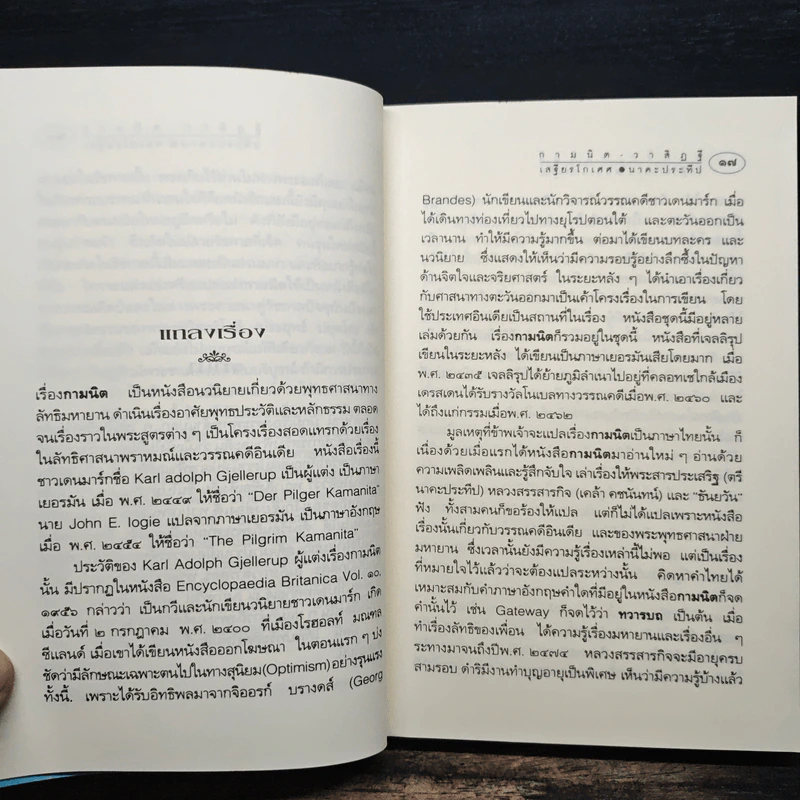 แถลงเรื่อง
เรื่องกามนิต เป็นหนังสือนวนิยายเกี่ยวด้วยพุทธศาสนาทาง
ลัทธิมหายาน ดำเนินเรื่องอาศัยพุทธประวัติและหลักธรรม ตลอด
จนเรื่องราวในพระสูตรต่าง ๆ เป็นโครงเรื่องสอดแทรกด้วยเรื่อง
ในลัทธิศาสนาพราหมณ์และวรรณคดีอินเดีย หนังสือเรื่องนี้
ชาวเดนมาร์กชื่อ Karl adolph Gjellerup เป็นผู้แต่ง เป็นภาษา
เยอรมัน เมื่อ พ.ศ. ๒๔๔๙ ให้ชื่อว่า “Der Pilger Kamanita”
นาย John E. logie แปลจากภาษาเยอรมัน เป็นภาษาอังกฤษ
เมื่อ พ.ศ. ๒๔๕๔ ให้ชื่อว่า “The Pilgrim Kamanita”
ประวัติของ Karl Adolph Gjellerup ผู้แต่งเรื่องกามนิต
นั้น มีปรากฏในหนังสือ Encyclopaedia Britanica Vol. ๑๐,
๑๙๕๖ กล่าวว่า เป็นกวีและนักเขียนนวนิยายชาวเดนมาร์ก เกิด
เมื่อวันที่ ๒ กรกฎาคม พ.ศ. ๒๔๐๐ ที่เมืองโรฮอลท์ มณฑล
ซีแลนด์ เมื่อเขาได้เขียนหนังสือออกโฆษณา ในตอนแรก ๆ บ่ง
ชัดว่ามีลักษณะเฉพาะตนไปในทางสุนิยม(Optimism)อย่างรุนแรง
ทั้งนี้. เพราะได้รับอิทธิพลมาจากจิออรก์ บรางดส์ (Georg
กามนิต-วาสิฏฐี
เสฐียรโกเศศ ● นาคะประทีป
๑๗
Brandes) นักเขียนและนักวิจารณ์วรรณคดีชาวเดนมาร์ก เมื่อ
ได้เดินทางท่องเที่ยวไปทางยุโรปตอนใต้ และตะวันออกเป็น
เวลานาน ทำให้มีความรู้มากขึ้น ต่อมาได้เขียนบทละคร และ
นวนิยาย ซึ่งแสดงให้เห็นว่ามีความรอบรู้อย่างลึกซึ้งในปัญหา
ด้านจิตใจและจริยศาสตร์ ในระยะหลัง ๆ ได้นำเอาเรื่องเกี่ยว
กับศาสนาทางตะวันออกมาเป็นเค้าโครงเรื่องในการเขียน โดย
ใช้ประเทศอินเดียเป็นสถานที่ในเรื่อง หนังสือชุดนี้มีอยู่หลาย
เล่มด้วยกัน เรื่องกามนิตก็รวมอยู่ในชุดนี้ หนังสือที่เจลลิรุป
เขียนในระยะหลัง ได้เขียนเป็นภาษาเยอรมันเสียโดยมาก เมื่อ
พ.ศ. ๒๔๓๕ เจลลิรุปได้ย้ายภูมิลำเนาไปอยู่ที่คลอทเซใกล้เมือง
เดรสเดนได้รับรางวัลโนเบลทางวรรณคดีเมื่อพ.ศ. ๒๔๖๐ และ
ได้ถึงแก่กรรมเมื่อพ.ศ. ๒๔๖๒
มูลเหตุที่ข้าพเจ้าจะแปลเรื่องกามนิตเป็นภาษาไทยนั้น ก็
เนื่องด้วยเมื่อแรกได้หนังสือกามนิตมาอ่านใหม่ ๆ อ่านด้วย
ความเพลิดเพลินและรู้สึกจับใจ เล่าเรื่องให้พระสารประเสริฐ (ตรี
นาคะประทีป) หลวงสรรสารกิจ (เคล้า คชนันทน์) และ “ธันยวัน”
ฟัง ทั้งสามคนก็ขอร้องให้แปล แต่ก็ไม่ได้แปลเพราะหนังสือ
เรื่องนั้นเกี่ยวกับวรรณคดีอินเดีย และของพระพุทธศาสนาฝ่าย
มหายาน ซึ่งเวลานั้นยังมีความรู้เรื่องเหล่านี้ไม่พอ แต่เป็นเรื่อง
ที่หมายใจไว้แล้วว่าจะต้องแปลระหว่างนั้น คิดหาคำไทยได้
เหมาะสมกับคำภาษาอังกฤษคำใดที่มีอยู่ในหนังสือกามนิตก็จด
คำนั้นไว้ เช่น Gateway ก็จดไว้ว่า ทวารบถ เป็นต้น เมื่อ
ทำเรื่องลัทธิของเพื่อน ได้ความรู้เรื่องมหายานและเรื่องอื่น ๆ
ระทางมาจนถึงปีพ.ศ. ๒๔๗๔ หลวงสรรสารกิจจะมีอายุครบ
สามรอบ ดำริมีงานทำบุญอายุเป็นพิเศษ เห็นว่ามีความรู้บ้างแล้ว